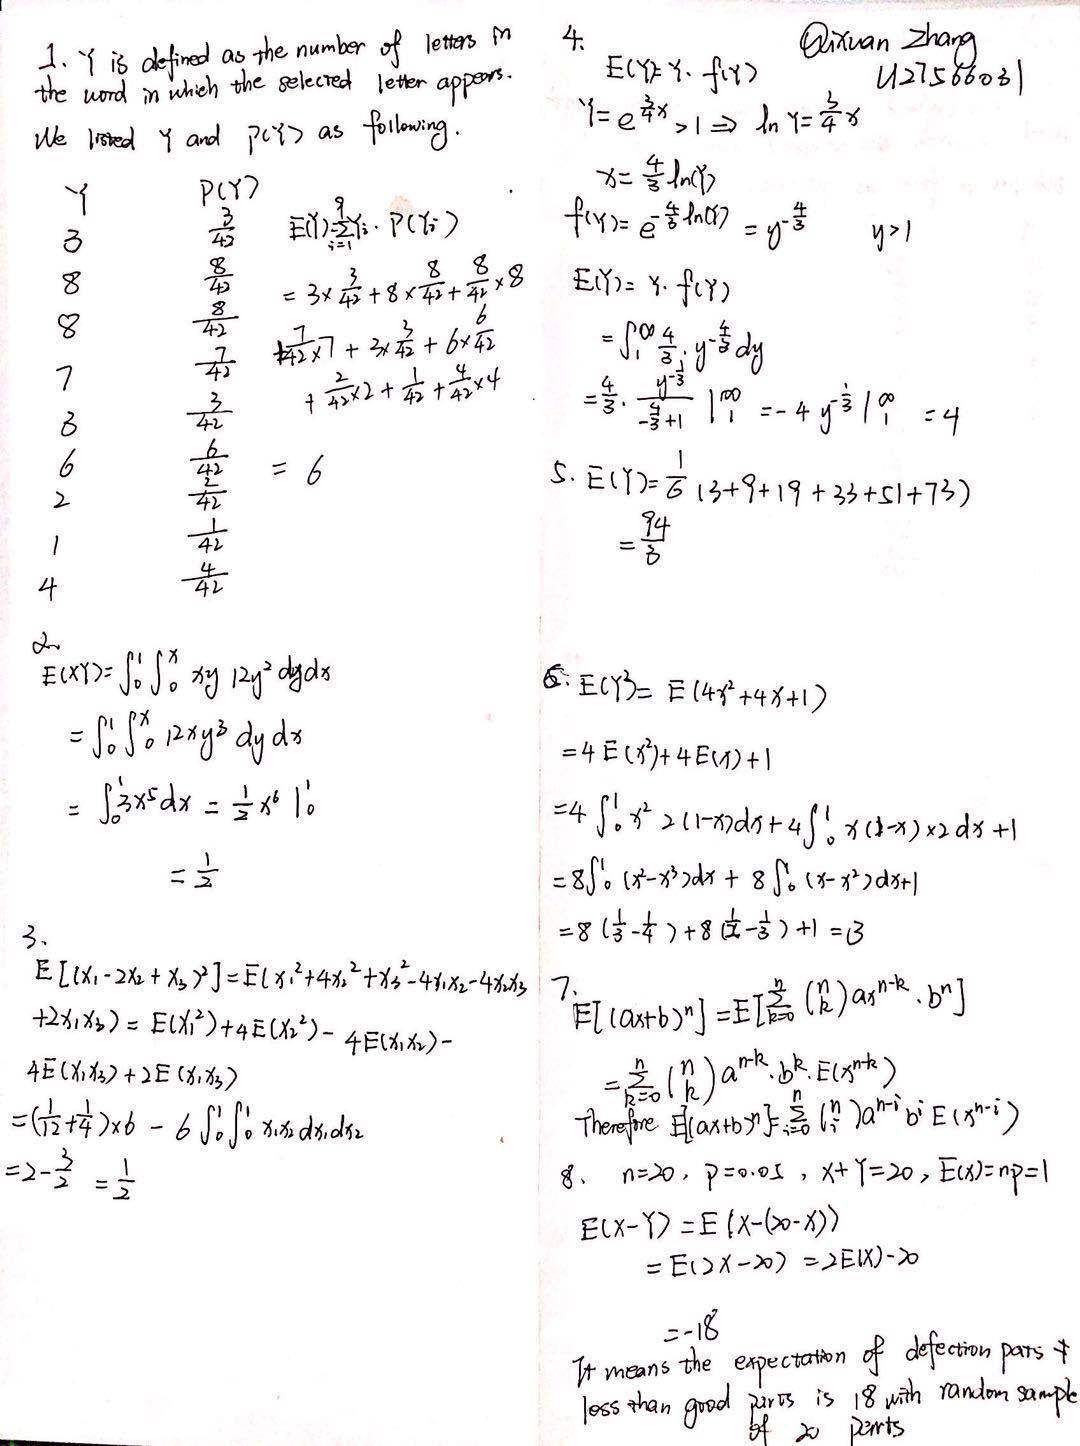 1. Y is defined as the number of letters in
the word in which the selected letter appears.
We listed Y and P(Y) as following.
Y P(Y)
3 3/42
8 8/42
8 8/42
7 7/42
3 3/42
6 6/42
2 2/42
1 1/42
4 4/42
E(Y)=∑_{i=1}^{9} Yi · P(Yi)
= 3×3/42 + 8×8/42 + 8/42×8
+7/42×7 + 3×3/42 + 6×6/42
+ 2/42×2 + 1/42 + 4/42×4
= 6
2.
E(XY)= ∫₀¹∫₀ˣ xy 12y² dydx
= ∫₀¹∫₀ˣ 12xy³ dy dx
= ∫₀¹ 3x⁵dx = 1/2 x⁶ |₀¹
= 1/2
3.
E[(X₁-2X₂+X₃)²]=E(X₁²+4X₂²+X₃²-4X₁X₂-4X₂X₃
+2X₁X₃) = E(X₁²)+4E(X₂²)- 4E(X₁X₂)-
4E(X₁X₃)+2E(X₁X₃)
=(1/12+1/4)×6 - 6∫₀¹∫₀¹ x₁x₂dx₁dx₂
=2-3/2 =1/2
Qixuan Zhang
U27566031
4.
E(Y)=Y·f(Y)
Y=e^{3/4 x}>1 ⇒ ln Y=3/4 x
x=4/3 ln(Y)
f(Y)=e^{-4/3 ln(Y)} =y^{-4/3} y>1
E(Y)= Y·f(Y)
=∫₁^∞ 4/3·y^{-4/3} dy
=4/3 · y^{-1/3}/(-4/3+1) |₁^∞ =-4 y^{-1/3} |₁^∞ =4
5. E(Y)=1/6 (3+9+19+33+51+73)
=94/3
6. E(Y²)= E(4x²+4x+1)
=4E(x²)+4E(x)+1
=4∫₀¹ x² 2(1-x)dx+4∫₀¹ x(1-x)×2dx+1
=8∫₀¹ (x²-x³)dx + 8∫₀¹ (x-x²)dx+1
=8(1/3-1/4)+8(1/2-1/3)+1=3
7.
E[(ax+b)ⁿ] =E[∑_{k=0}^{n} (n k) ax^{n-k}·bⁿ]
=∑_{k=0}^{n} (n k) a^{n-k}·b^k·E(x^{n-k})
Therefore E[(ax+b)ⁿ]=∑_{i=0}^{n} (n i) a^{n-i} b^i E(x^{n-i})
8. n=20, p=0.05, X+Y=20, E(X)=np=1
E(X-Y) =E(X-(20-X))
=E(2X-20) =2E(X)-20
=-18
It means the expectation of defection pars
less than good parts is 18 with random sample
of 20 parts